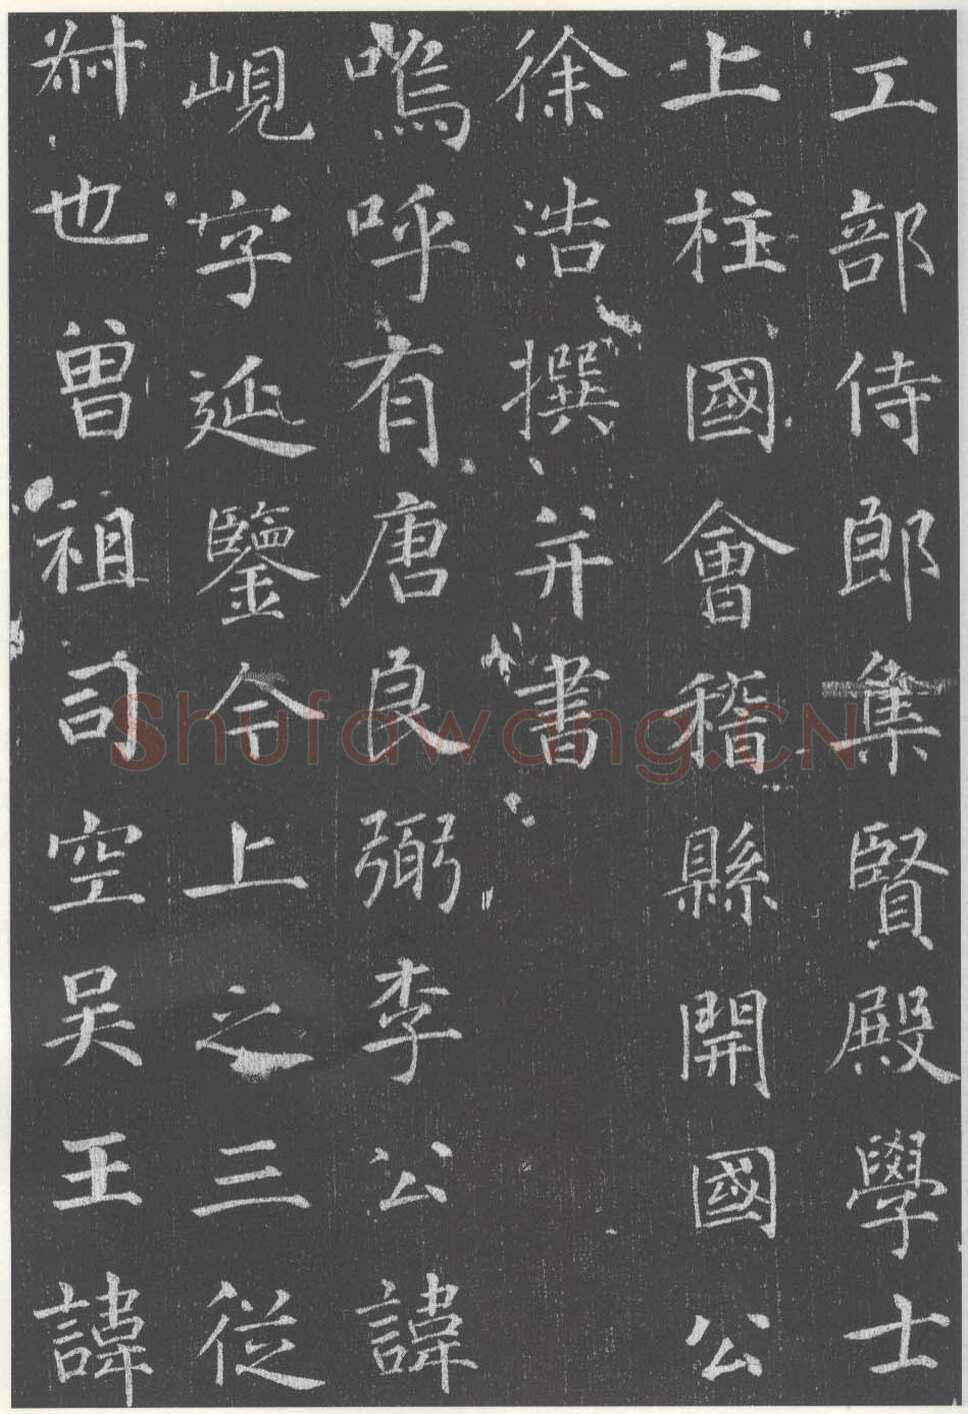 工部侍郎集賢殿學士
上柱國會稽縣開國公
徐浩撰并書
嗚呼有唐良弼李公諱
峴字延鑒今上之三從
叔也曽祖司空吴王諱
Shufawang.CN